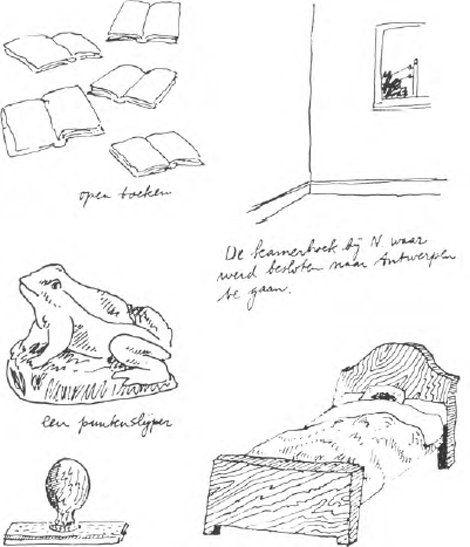 open boeken
De kamerhoek bij N. waar
werd besloten naar Antwerpen
te gaan.
een puntenslijper